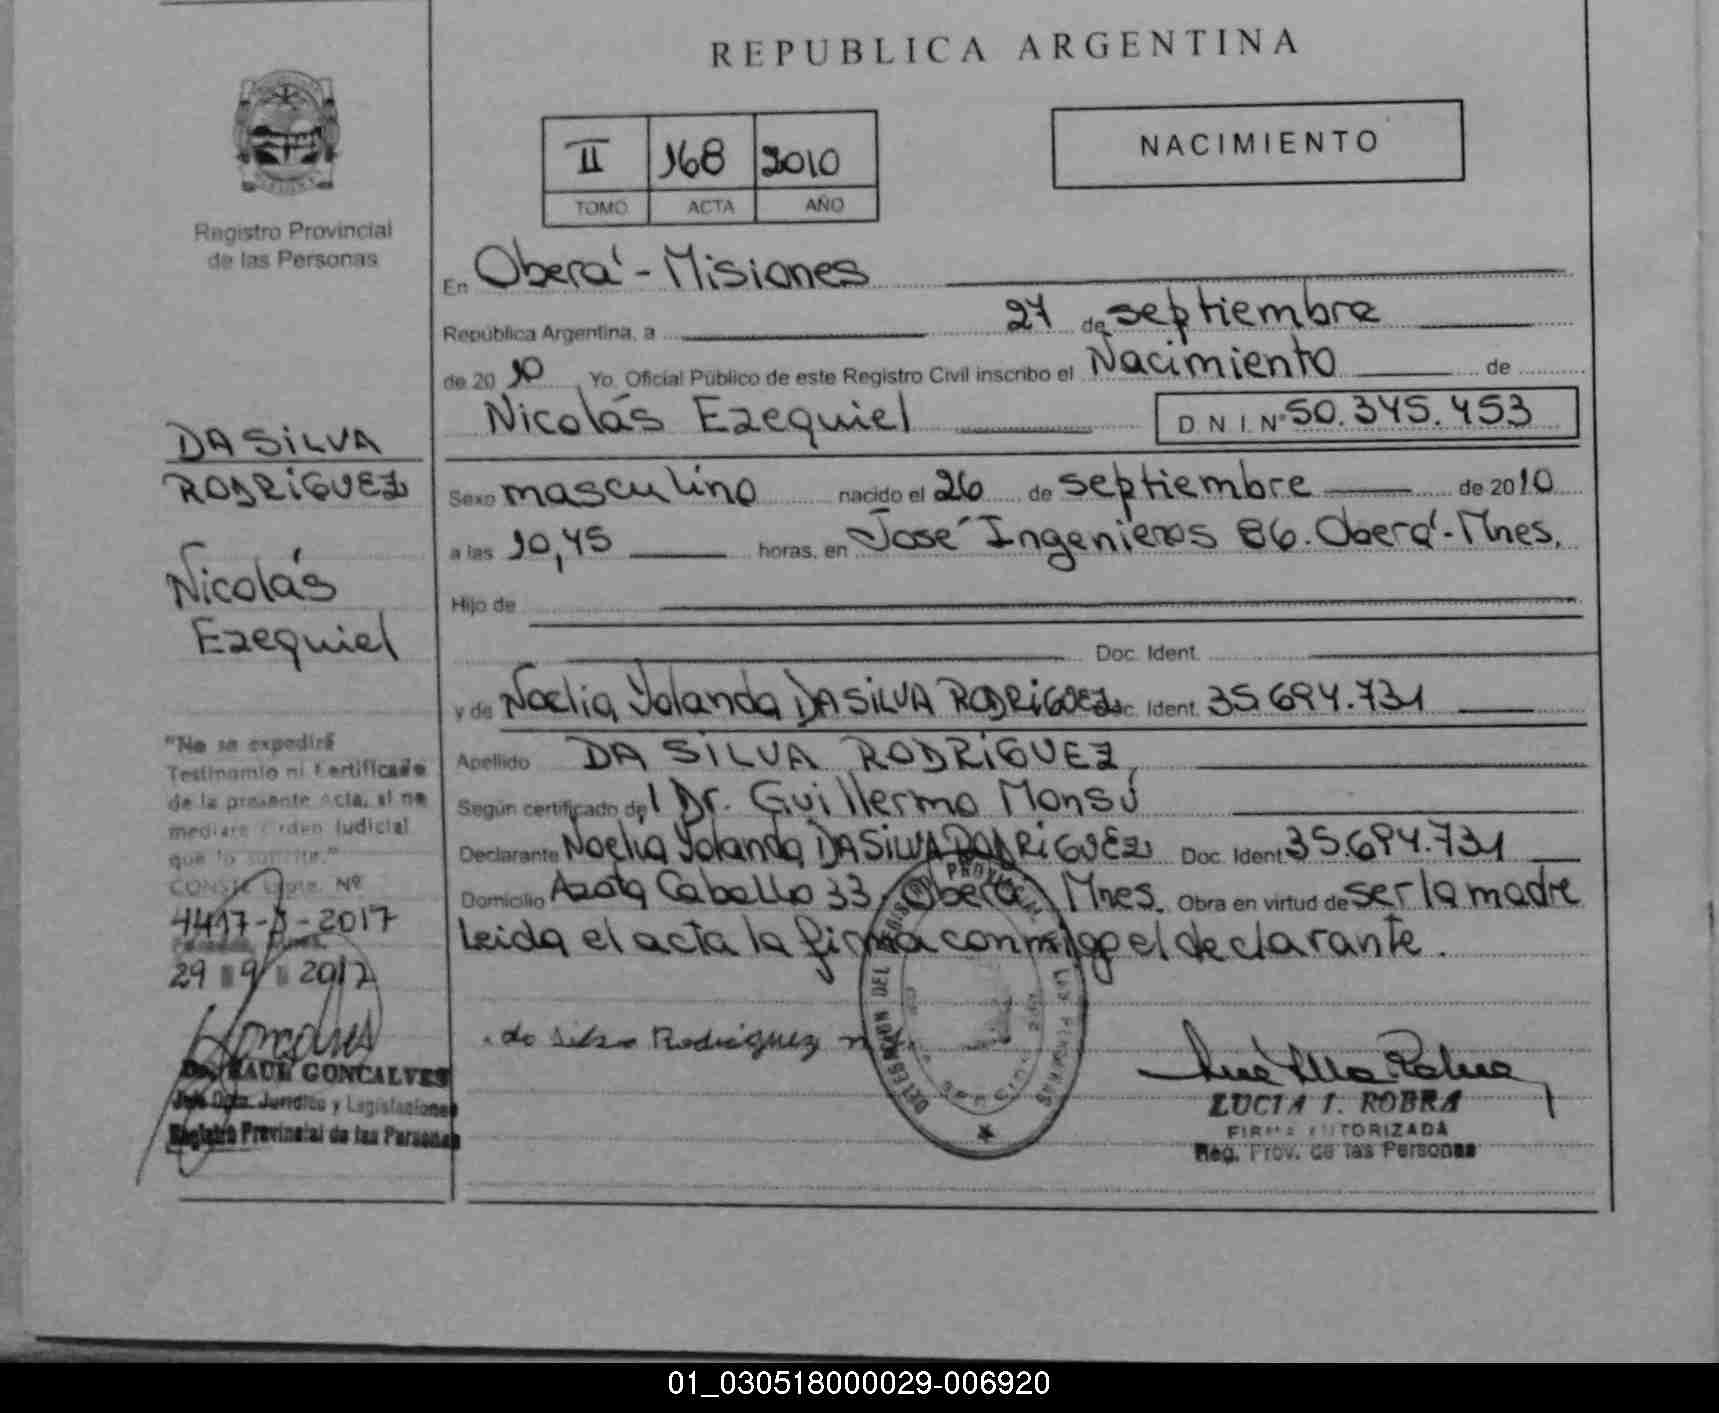 REPUBLICA ARGENTINA
NACIMIENTO
II 168 2010
TOMO ACTA AÑO
Registro Provincial
de las Personas
En Oberá - Misiones
República Argentina, a 27 de septiembre
de 2010 Yo, Oficial Público de este Registro Civil inscribo el Nacimiento de
Nicolás Ezequiel D N I. Nº 50.345.453
DA SILVA
RODRIGUEZ
Nicolás
Ezequiel
Sexo masculino nacido el 26 de septiembre de 2010
a las 10,45 horas, en José Ingenieros 86. Oberá - Mnes.
Hijo de
Doc. Ident.
y de Noelia Yolanda DA SILVA RODRIGUEZ Doc. Ident. 35.694.731
Apellido DA SILVA RODRIGUEZ,
Según certificado del Dr. Guillermo Monsú
Declarante Noelia Yolanda DA SILVA RODRIGUEZ Doc. Ident. 35.694.731
Domicilio Azota Caballo 33, Oberá Mnes. Obra en virtud de ser la madre
Leida el acta la firma conmigo el declarante.
"No se expedirá
Testimonio ni Certificado
de la presente Acta, si no
mediare Orden Judicial
que lo solicite."
Nº
2017
29 9 2017
Dr. RAUL GONCALVES
Jefe Dpto. Jurídico y Legislaciones
Registro Provincial de las Personas
da Silva Rodriguez n
LUCIA I. ROBRA
FIRMA AUTORIZADA
Reg. Prov. de las Personas
01_030518000029-006920